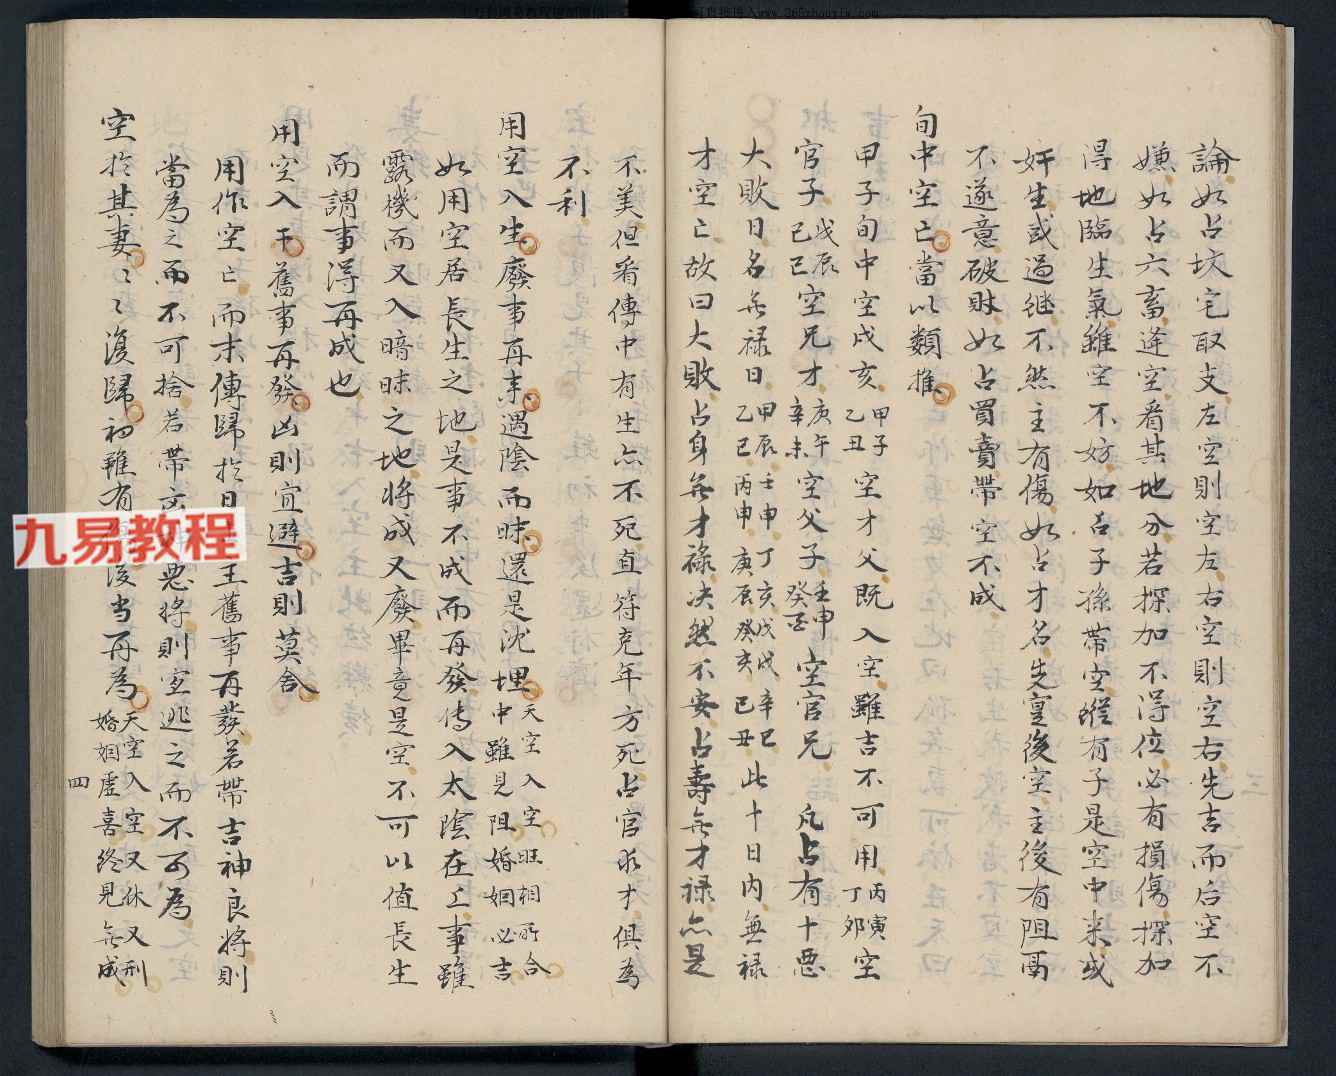 論如占坟宅取支左空則空左右空則空右先吉而后空不
嫌如占六畜逢空看其地分若探加不得位必有損傷探加
得地臨生氣雖空不妨如占子孫帶空縱有子是空中来或
奸生或過継不然主有傷如占才名先實後空主後有阻再
不遂意破財如占買賣帶空不成
旬中空亡當以類推
甲子旬中空戍亥 甲子乙丑 空才父既入空雖吉不可用 丙寅丁夘 空
官子 戊辰己巳 空兄才 庚午辛未 空父子 壬申癸酉 空官兄 凡占有十悪
大敗日名無禄日 甲辰 壬申 丁亥 戊戍 辛巳
乙巳 丙申 庚辰 癸亥 己丑 此十日内無禄
才空亡故曰大敗占身無才祿决然不安占壽無才禄亦是
不美但看傳中有生亦不死直符克年方死占官求才俱為
不利
用空入生廢事再来遇陰而昧還是沈埋 天空入空旺相所合
中雖見阻婚姻必吉
如用空居長生之地是事不成而再發傳入太陰在上事雖
露機而又入暗昧之地将成又廢畢竟是空不可以值長生
而謂事得再成也
用空入干舊事再發凶則宜避吉則莫舍
用作空亡而末傳歸扵日 主舊事再發若帶吉神良將則
當為之而不可捨若帶 悪將則宜逃之而不可為
空扵其妻〻〻復歸初雖有 後当再為 天空入空又休又刑
婚姻虛喜終見無成
四
九易教程
www.265zhouyis.com